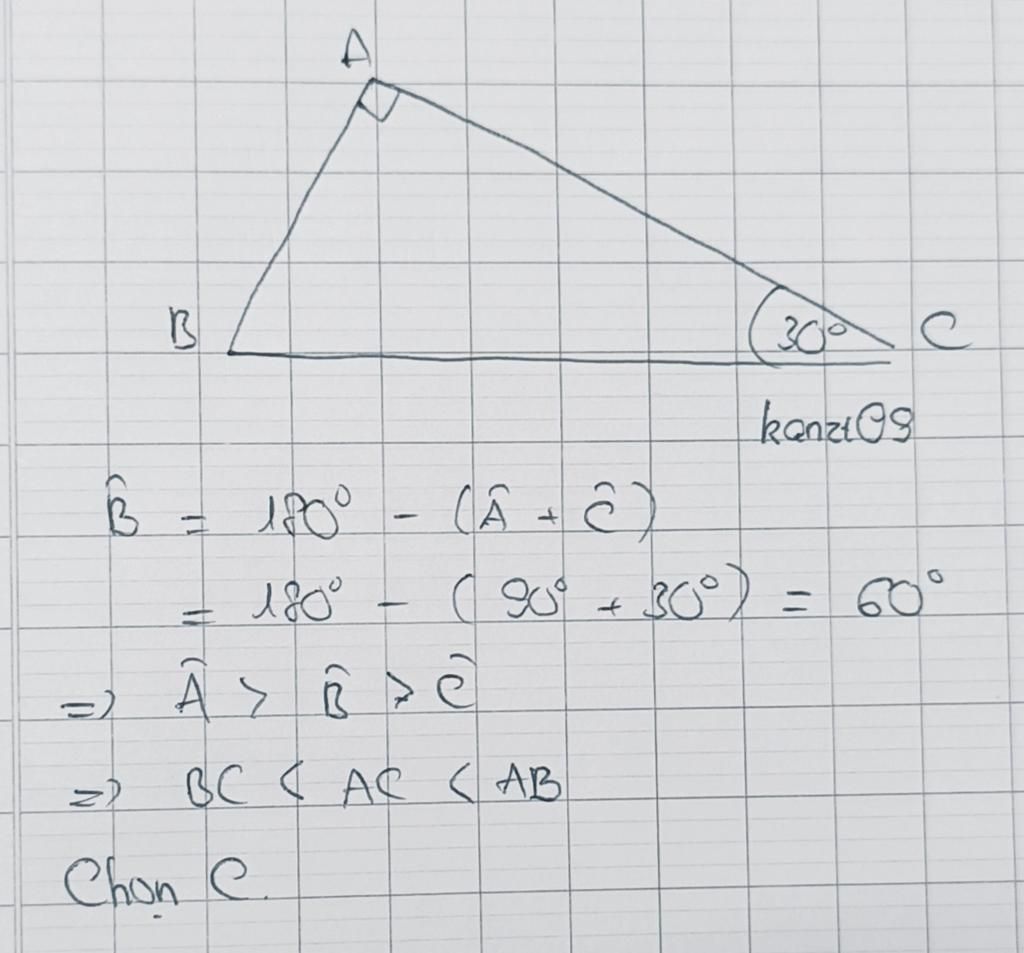 A
B
30° C
kanzt09
B̂ = 180° - (Â + Ĉ)
= 180° - (90° + 30°) = 60°
=> Â > B̂ > Ĉ
=> BC < AC < AB
Chọn C.